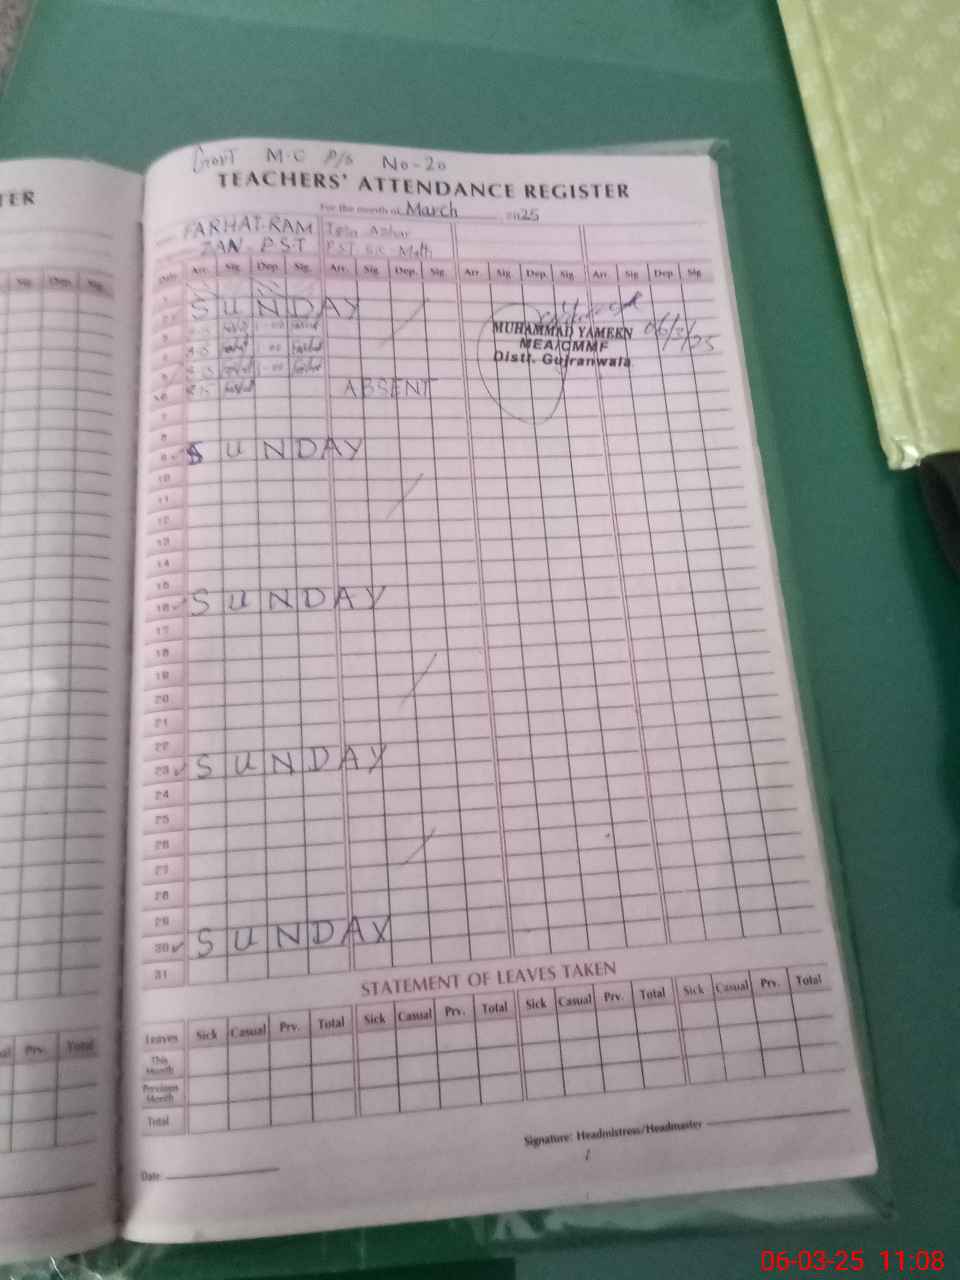 TER
Govt M.C P/S No-20
TEACHERS' ATTENDANCE REGISTER
For the month of March 2025
FARHAT RAM
ZAN P.S.T
Iqra Azhar
P.S.T Sc-Math
Sig. Dep. Sig.
Date Arr. Sig. Dep. Sig. Arr. Sig. Dep. Sig. Arr. Sig. Dep. Sig. Arr. Sig. Dep. Sig.
1
2 SUNDAY
3 1-00
4 1-00
5 1-00
6 ABSENT
MUHAMMAD YAMEEN
MEA/CMMF
Distt. Gujranwala
06/3/25
7
8
9 SUNDAY
10
11
12
13
14
15
16 SUNDAY
17
18
19
20
21
22
23 SUNDAY
24
25
26
27
28
29
30 SUNDAY
31
STATEMENT OF LEAVES TAKEN
Leaves Sick Casual Prv. Total Sick Casual Prv. Total Sick Casual Prv. Total Sick Casual Prv. Total
This Month
Previous Month
Total
Prv. Total
Signature: Headmistress/Headmaster
Date:
06-03-25 11:08